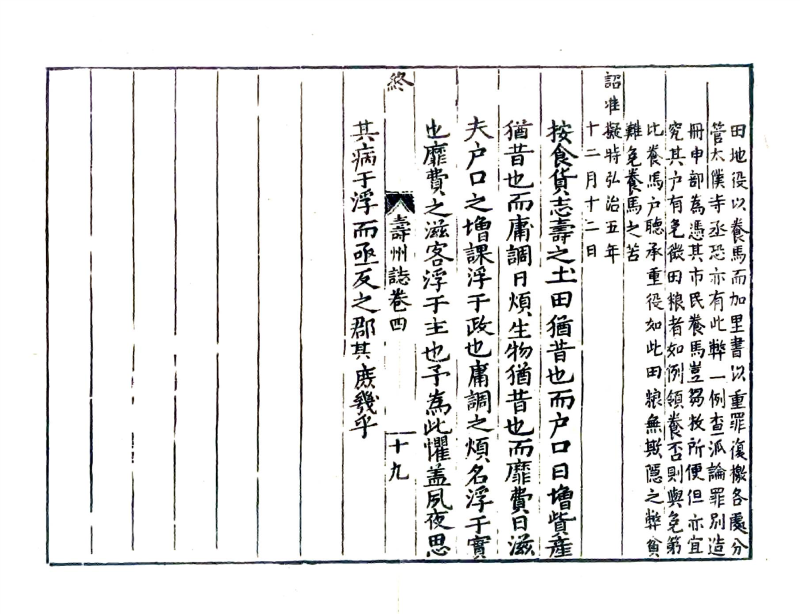 田地役以養馬而加里書以重罪復檄各處分
管太僕寺丞恐亦有此弊一例查派論罪别造
冊申部為憑其市民養馬豈芻牧所便但亦宜
究其户有免徵田粮者如例領養否則與免第
比養馬户聽承重役如此田粮無欺隱之弊貧
難免養馬之苦
詔准擬特弘治五年
十二月十二日
按食貨志壽之土田猶昔也而户口日増貲産
猶昔也而庸調日煩生物猶昔也而靡費日滋
夫户口之増課浮于政也庸調之煩名浮于實
也靡費之滋客浮于主也予為此懼盖夙夜思
終
壽州誌卷四
十九
其病于浮而亟反之郡其庶幾乎